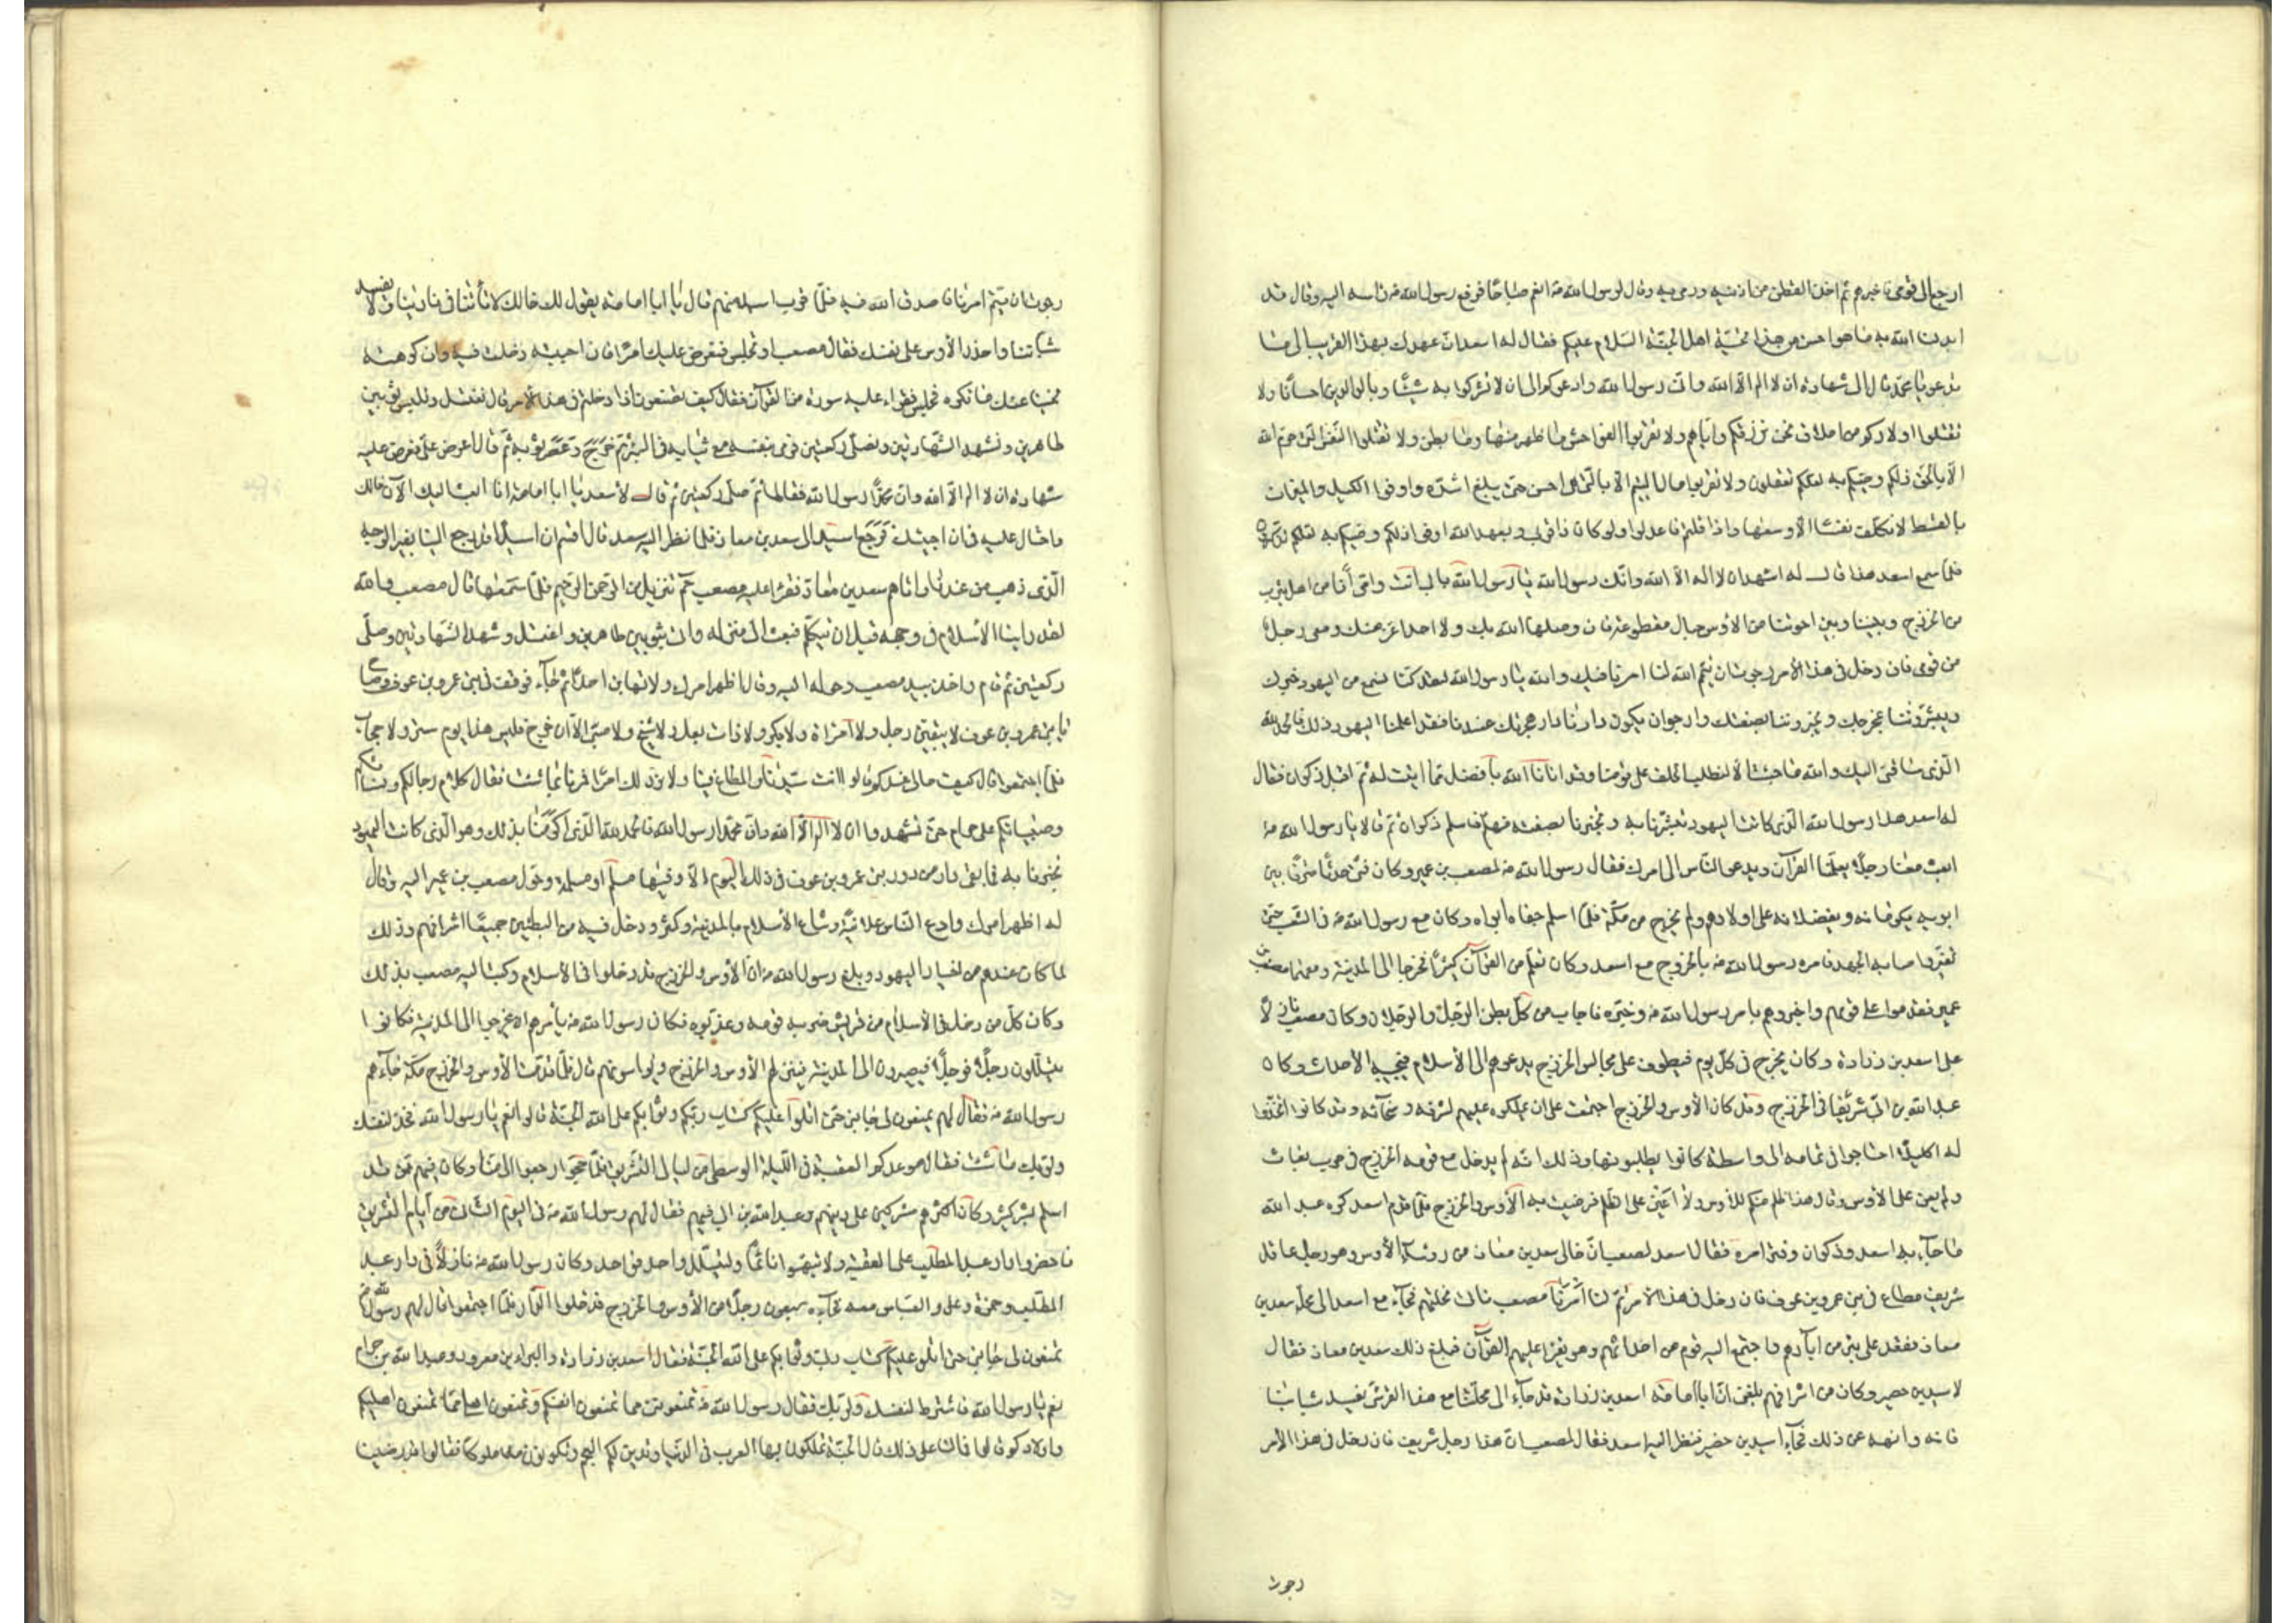 ارجع الى قومي فاخبرهم ثم اخذ القطن من اذنيه ورمى به وقال لرسول الله ص انعم صباحا فرفع رسول الله ص راسه اليه وقال قد
ابدلنا الله به ما هو احسن من هذا تحيّة اهل الجنّة السّلام عليكم فقال له اسعد انّ عهدك بهذا لقريب الى ما
تدعو يا محمّد قال الى شهادة ان لا اله الّا الله وانّي رسول الله وادعوكم الى ان لا تشركوا به شيئًا وبالوالدين احسانًا ولا
تقتلوا اولادكم من املاق نحن نرزقكم وايّاهم ولا تقربوا الفواحش ما ظهر منها وما بطن ولا تقتلوا النّفس الّتي حرّم الله
الّا بالحقّ ذلكم وصّيكم به لعلّكم تعقلون ولا تقربوا مال اليتيم الّا بالّتي هي احسن حتّى يبلغ اشدّه واوفوا الكيل والميزان
بالقسط لا نكلّف نفسًا الّا وسعها واذا قلتم فاعدلوا ولو كان ذا قربى وبعهد الله اوفوا ذلكم وصّيكم به لعلّكم تذكّرون
فلمّا سمع اسعد هذا قال له اشهد ان لا اله الّا الله وانّك رسول الله يا رسول الله بابي انت وامّي أنا من اهل يثرب
من الخزرج وبيننا وبين اخوتنا من الأوس حبال مقطوعة فان وصلها الله بك ولا احد اعزّ منك ومعي رجل
من قومي فان دخل في هذا الأمر رجوت ان يتمّ الله لنا امرنا فيك والله يا رسول الله لقد كنّا نسمع من اليهود خبرك
ويبشّروننا بمخرجك ويخبروننا بصفتك وارجو ان يكون دارنا دار هجرتك عندنا فقد اعلمنا اليهود ذلك فالحمد لله
الّذي ساقني اليك والله ما جئت الّا لنطلب الحلف على قومنا وقد اتانا الله بأفضل ممّا اتيت له ثمّ اقبل ذكوان فقال
له اسعد هذا رسول الله الّذي كانت اليهود تبشّرنا به وتخبرنا بصفته فهلمّ فاسلم فاسلم ذكوان ثم قالا يا رسول الله ص
ابعث معنا رجلًا يعلّمنا القرآن ويدعو النّاس الى امرك فقال رسول الله ص لمصعب بن عمير وكان فتى حدثًا مترفًا بين
ابويه يكرمانه ويفضلانه على اولادهم ولم يخرج من مكّة فلمّا اسلم جفاه أبواه وكان مع رسول الله ص في الشّعب حتّى
تغيّر واصابه الجهد فامره رسول الله ص بالخروج مع اسعد وكان تعلّم من القرآن كثيرًا فخرجا الى المدينة ومعهما مصعب بن
عمير فقدموا على قومهم واخبروهم بامر رسول الله ص وخبره فاجاب من كلّ بطن الرّجل والرّجلان وكان مصعب نازلًا
على اسعد بن زرارة وكان يخرج في كلّ يوم فيطوف على مجالس الخزرج يدعوهم الى الأسلام فيجيبه الأحداث وكان
عبد الله بن ابيّ شريفًا في الخزرج وقد كان الأوس والخزرج اجتمعت على ان يملّكوه عليهم لشرفه وسخآئه وقد كانوا اتّخذوا
له اكليلًا احتاجوا في تمامه الى واسطة كانوا يطلبونها وذلك انّه لم يدخل مع قومه الخزرج في حرب بغاث
ولم يعن على الأوس وقال هذا ظلم منكم للأوس ولا اعين على الظّلم فرضيت به الأوس والخزرج فلمّا قدم اسعد كره عبد الله
ما جآء به اسعد وذكوان وفتر امره فقال اسعد لمصعب انّ خالي سعد بن معاذ من رؤسآء الأوس وهو رجل عاقل
شريف مطاع في بني عمرو بن عوف فان دخل في هذا الأمر تمّ لنا أمرنا فهلمّ نأتي محلّتهم فجآء مع اسعد الى محلّة سعد بن
معاذ فقعد على بئر من آبارهم واجتمع اليه قوم من احداثهم وهو يقرأ عليهم القرآن فبلغ ذلك سعد بن معاذ فقال
لاسيد بن حضير وكان من اشرافهم بلغني انّ ابا امامة اسعد بن زرارة قد جآء الى محلّتنا مع هذا القرشيّ يفسد شبابنا
فاته وانهه عن ذلك فجآء اسيد بن حضير فنظر اليه اسعد فقال لمصعب انّ هذا رجل شريف فان دخل في هذا الأمر
رجوت
رجوت ان يتمّ امرنا فاصدق الله فيه فلمّا قرب اسيد منهم قال يا ابا امامة يقول لك خالك لا تأتنا في نادينا ولا تفسد
شبّاننا واحذر الأوس على نفسك فقال مصعب او تجلس فنعرض عليك امرًا فان احببته دخلت فيه وان كرهته
نحّينا عنك ما تكره فجلس فقرأ عليه سورة من القرآن فقال كيف تصنعون اذا دخلتم في هذا الأمر قال نغتسل ونلبس ثوبين
طاهرين ونشهد الشّهادتين ونصلّي ركعتين فرمى بنفسه مع ثيابه في البئر ثم خرج وعصر ثوبه ثمّ قال اعرض عليّ فعرض عليه
شهادة ان لا اله الّا الله وانّ محمّدًا رسول الله فقالها ثمّ صلّى ركعتين ثم قال لأسعد يا ابا امامة انا ابعث اليك الآن خالك
واحتال عليه في ان يجيئك فرجع اسيد الى سعد بن معاذ فلمّا نظر اليه سعد قال اقسم ان اسيدًا قد رجع الينا بغير الوجه
الّذي ذهب من عندنا واتاهم سعد بن معاذ فقرأ عليه مصعب حم تنزيل من الرّحمن الرّحيم فلمّا سمعها قال مصعب والله
لقد راينا الأسلام في وجهه قبل ان يتكلّم فبعث الى منزله واتى بثوبين طاهرين واغتسل وشهد الشّهادتين وصلّى
ركعتين ثم قام واخذ بيد مصعب وحوله اليه وقال اظهر امرك ولا تهابنّ احدًا ثمّ جآء فوقف في بني عمرو بن عوف وصاح
يا بني عمرو بن عوف لا يبقينّ رجل ولا امرأة ولا بكر ولا ذات بعل ولا شيخ ولا صبيّ الّا ان خرج فليس هذا يوم ستر ولا حجاب
فلمّا اجتمعوا قال كيف حالي عندكم قالوا انت سيّدنا والمطاع فينا ولا نردّ لك امرًا فمرنا بما شئت فقال كلام رجالكم ونسائكم
وصبيانكم عليّ حرام حتّى تشهدوا ان لا اله الّا الله وانّ محمّدا رسول الله فالحمد لله الّذي اكرمنا بذلك وهو الّذي كانت اليهود
تخبرنا به فما بقي دار من دور بني عمرو بن عوف في ذلك اليوم الّا وفيها مسلم او مسلمة وحوّل مصعب بن عمير اليه وقال
له اظهر امرك وادع النّاس علانيّة وشاع الأسلام بالمدينة وكثر ودخل فيه من البطنين جميعًا اشرافهم وذلك
لما كان عندهم من اخبار اليهود وبلغ رسول الله ص انّ الأوس والخزرج قد دخلوا في الأسلام وكتب اليه مصعب بذلك
وكان كلّ من دخل في الأسلام من قريش ضربه قومه وعذّبوه فكان رسول الله ص يأمرهم ان يخرجوا الى المدينة فكانوا
يتسلّلون رجلًا فرجلًا فيصيرون الى المدينة فينزلهم الأوس والخزرج ويواسونهم قال فلمّا قدمت الأوس والخزرج مكّة جآءهم
رسول الله ص فقال لهم تمنعون لي جانبي حتّى اتلو عليكم كتاب ربّكم وثوابكم على الله الجنّة قالوا نعم يا رسول الله فخذ لنفسك
ولربّك ما شئت فقال موعدكم العقبة في اللّيلة الوسطى من ليالي التّشريق فلمّا حجّوا رجعوا الى منا وكان فيهم ممّن قد
اسلم بشر كثير وكان اكثرهم مشركين على دينهم وعبد الله بن ابي فيهم فقال لهم رسول الله ص في اليوم الثّالث من أيّام التّشريق
فاحضروا دار عبد المطّلب على العقبة ولا تنبّهوا نائمًا وليتسلّل واحد فواحد وكان رسول الله ص نازلًا في دار عبد
المطّلب وحمزة وعلي والعبّاس معه فجآءه سبعون رجلًا من الأوس والخزرج فدخلوا الدّار فلمّا اجتمعوا قال لهم رسول الله ص
تمنعون لي جانبي حتّى اتلو عليكم كتاب ربّي وثوابكم على الله الجنّة فقال اسعد بن زرارة والبراء بن معرور وعبد الله بن حرام
نعم يا رسول الله فاشترط لنفسك ولربّك فقال رسول الله ص تمنعونني ممّا تمنعون انفسكم وتمنعون اهلي ممّا تمنعون اهليكم
واولادكم قالوا فما لنا على ذلك قال الجنّة تملكون بها العرب في الدّنيا وتدين لكم العجم وتكونون ملوكًا فقالوا قد رضينا